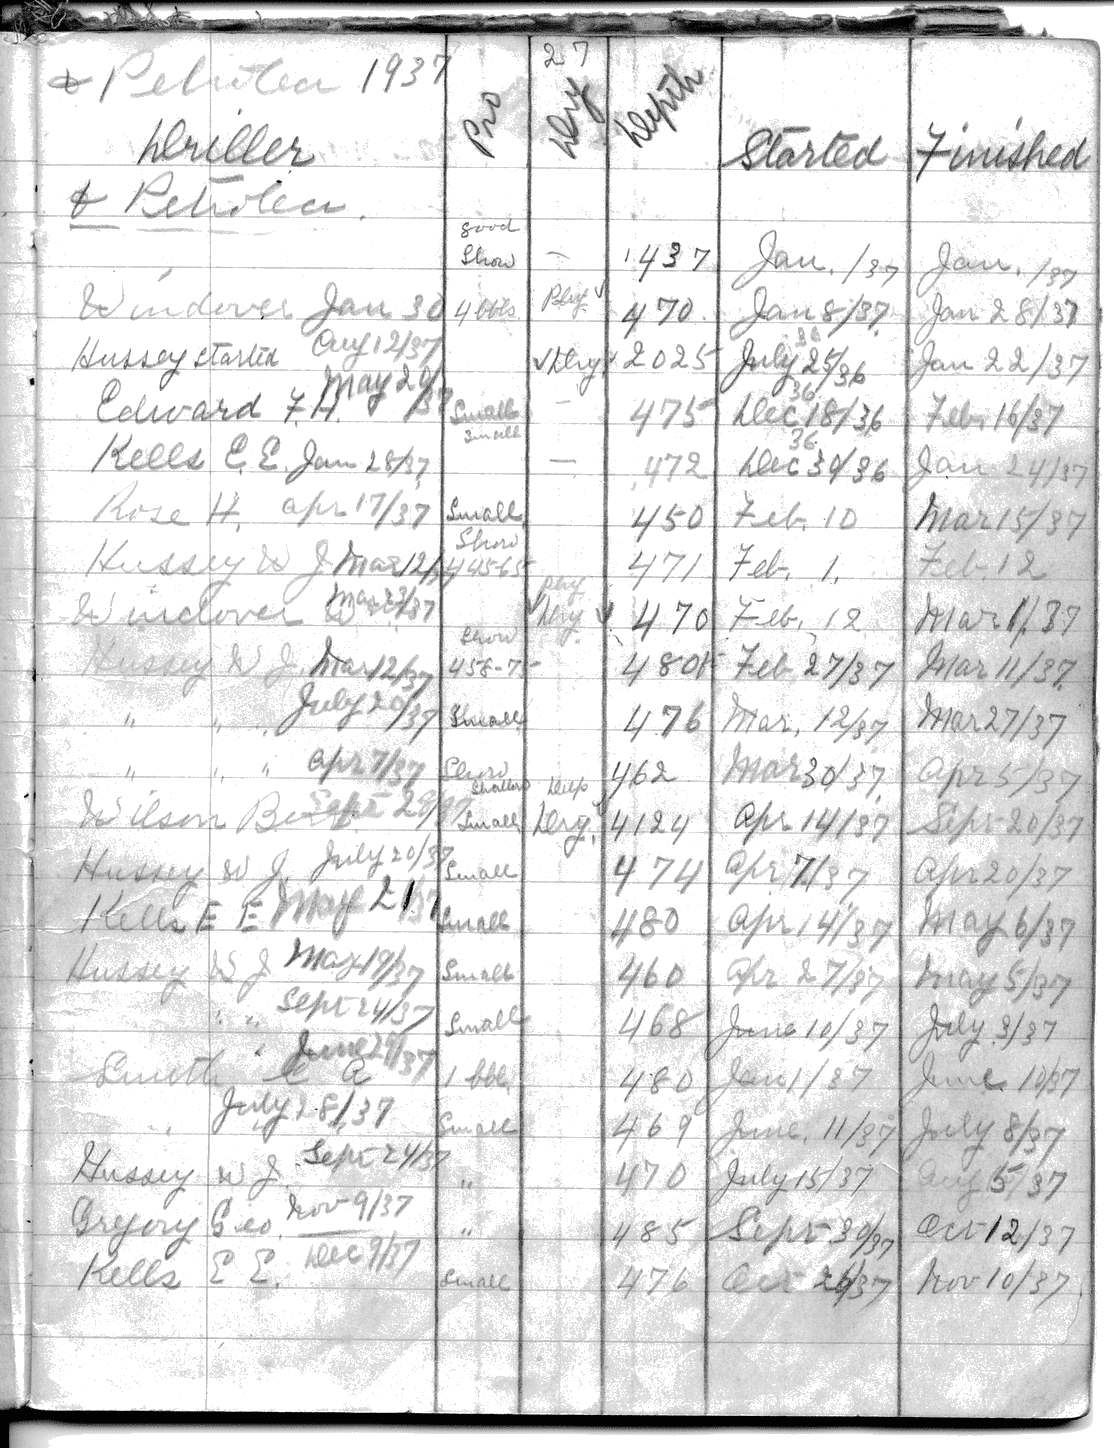 & Petrolea 1937 Pro 27 Dry Depth
Driller Started Finished
& Petrolea.
good
Show — 437 Jan. /37 Jan. /37
Windover Jan 30 4 bbls Play 470 Jan 8/37 Jan 28/37
Hussey started Aug 12/37 Dry 2025 July 25/36 Jan 22/37
Edward F. H. May 20/37 Small — 475 Dec 18/36 Feb. 16/37
Kells E. E. Jan 28/37 Small — 472 Dec 30/36 Jan 24/37
Rose H. Apr 17/37 Small 450 Feb. 10 Mar 15/37
Hussey W J Mar 12/37 Show 471 Feb. 1. Feb. 12
Windover Mar 23/37 Dry 470 Feb. 12 Mar 1/37
Hussey W J. Mar 12/37 Show 458-75 480 Feb 27/37 Mar 11/37
" " July 20/37 Small 476 Mar. 12/37 Mar 27/37
" " " Apr 7/37 Show 462 Mar 30/37 Apr 5/37
Shallow Deep
Wilson Sept 29/37 Small Dry 4124 Apr 14/37 Sept 20/37
Hussey W J. July 20/37 Small 474 Apr 7/37 Apr 20/37
Kells E E May 21/37 Small 480 Apr 14/37 May 6/37
Hussey W J May 19/37 Small 460 Apr 27/37 May 5/37
" " Sept 24/37 Small 468 June 10/37 July 3/37
Smith C A June 29/37 1 bbl. 480 Jan 1/37 June 10/37
" July 28/37 Small 469 June. 11/37 July 8/37
Hussey W J. Sept 24/37 " 470 July 15/37 Aug 5/37
Gregory Geo. Nov 9/37 " 485 Sept 30/37 Oct 12/37
Kells E E. Dec 9/37 Small 476 Oct 26/37 Nov 10/37